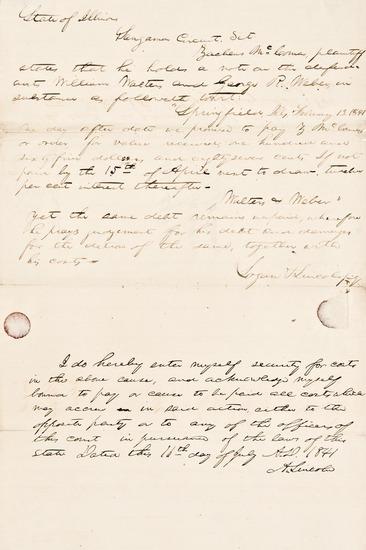 State of Illinois
Sangamon Circuit. Sct
McComas, plaintiff
states that he holds a note on the defend
ant William Walters and George R. Weber, in
substance as followeth to wit:
"Springfield, Ills, February 13. 1841
One day after date we promise to pay Z McComas
or order for value received one hundred and
sixty four dollars and eighty seven cents If not
paid by the 15th of April next to draw twelve
per cent interent thereafter—
Walters & Weber"
yet the same debt remains unpaid, wherefore
he prays judgement for his debt and damages
for the detention of the same, together with
his costs—
Logan & Lincoln
I do hereby enter myself security for costs
in the above cause, and acknowledge myself
bound to pay or cause to be paid all costs which
may accrue in said action either to the
opposite party or to any of the officers of
this court in pursuance of the laws of this
state Dated this 16th day of July A.D. 1841
A. Lincoln